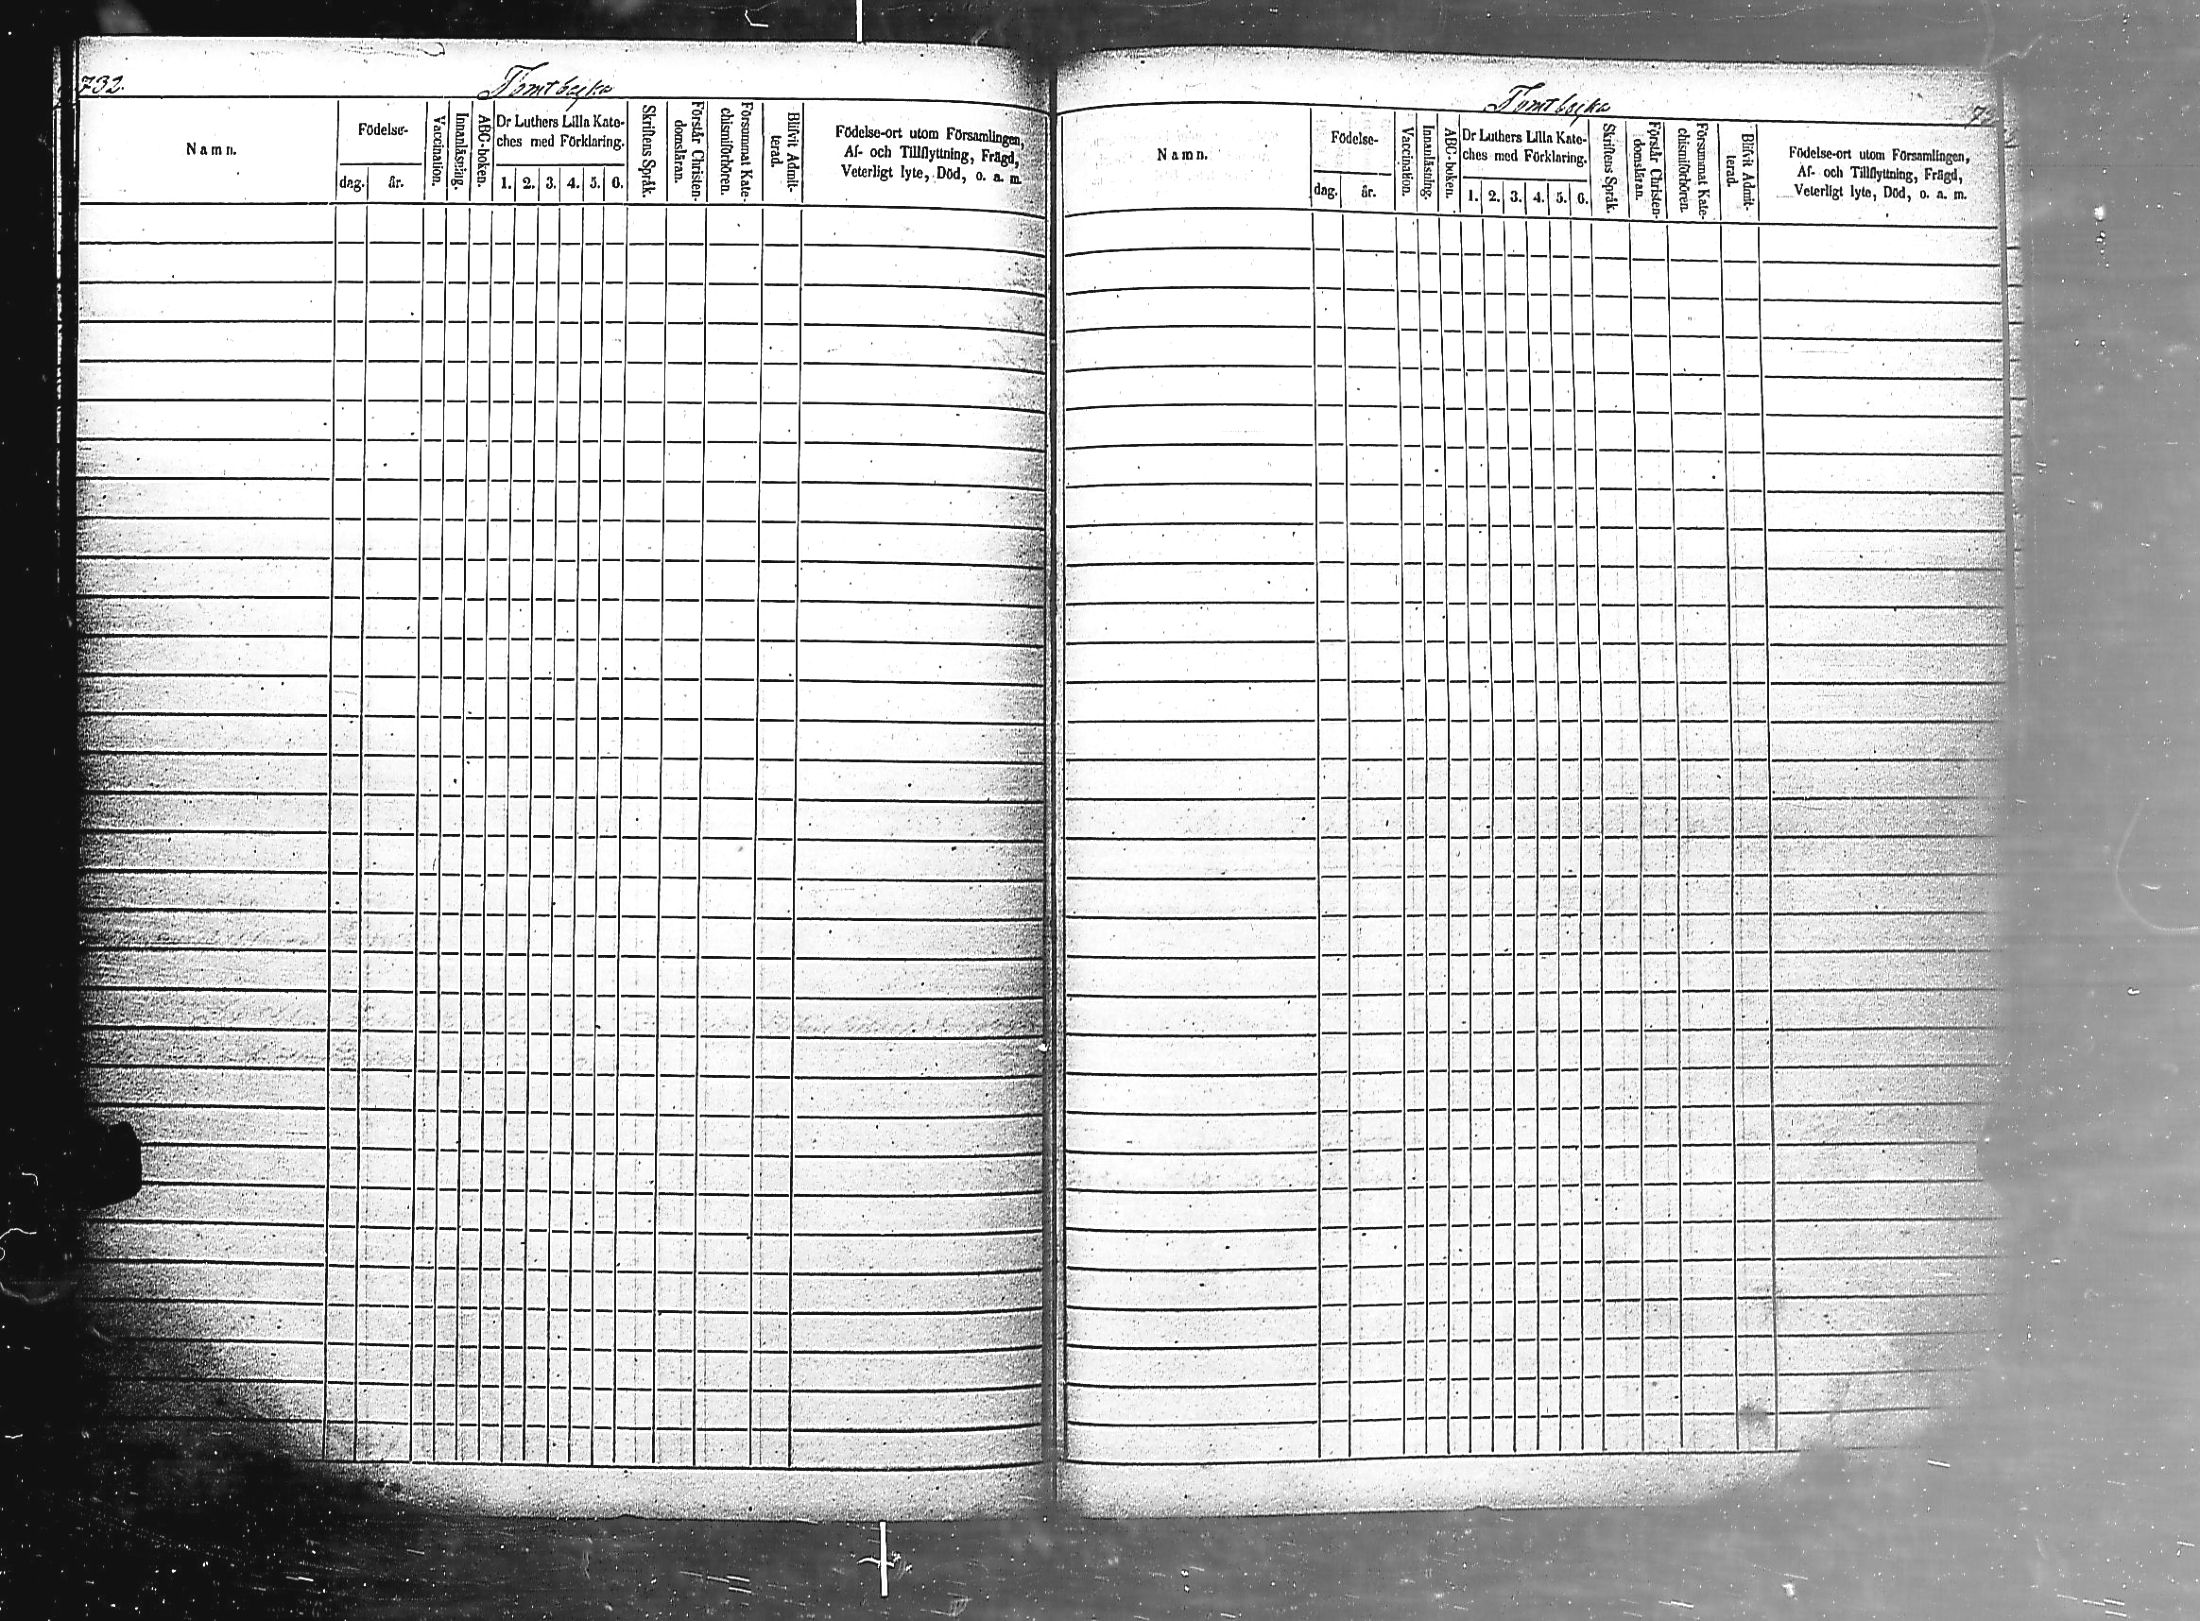 732.
Tomtbacka
Namn.
Födelse-
dag. år.
Vaccination.
Innanläsning.
ABC-boken.
Dr Luthers Lilla Kate-
ches med Förklaring.
1. 2. 3. 4. 5. 6.
Skriftens Språk.
Förstår Christen-
domsläran.
Försummat Kate-
chismiförhören.
Blifvit Admit-
terad.
Födelse-ort utom Församlingen,
Af- och Tillflyttning, Frägd,
Veterligt lyte, Död, o. a. m.
Tomtbacka
7
Namn.
Födelse-
dag. år.
Vaccination.
Innanläsning.
ABC-boken.
Dr Luthers Lilla Kate-
ches med Förklaring.
1. 2. 3. 4. 5. 6.
Skriftens Språk.
Förstår Christen-
domsläran.
Försummat Kate-
chismiförhören.
Blifvit Admit-
terad.
Födelse-ort utom Församlingen,
Af- och Tillflyttning, Frägd,
Veterligt lyte, Död, o. a. m.